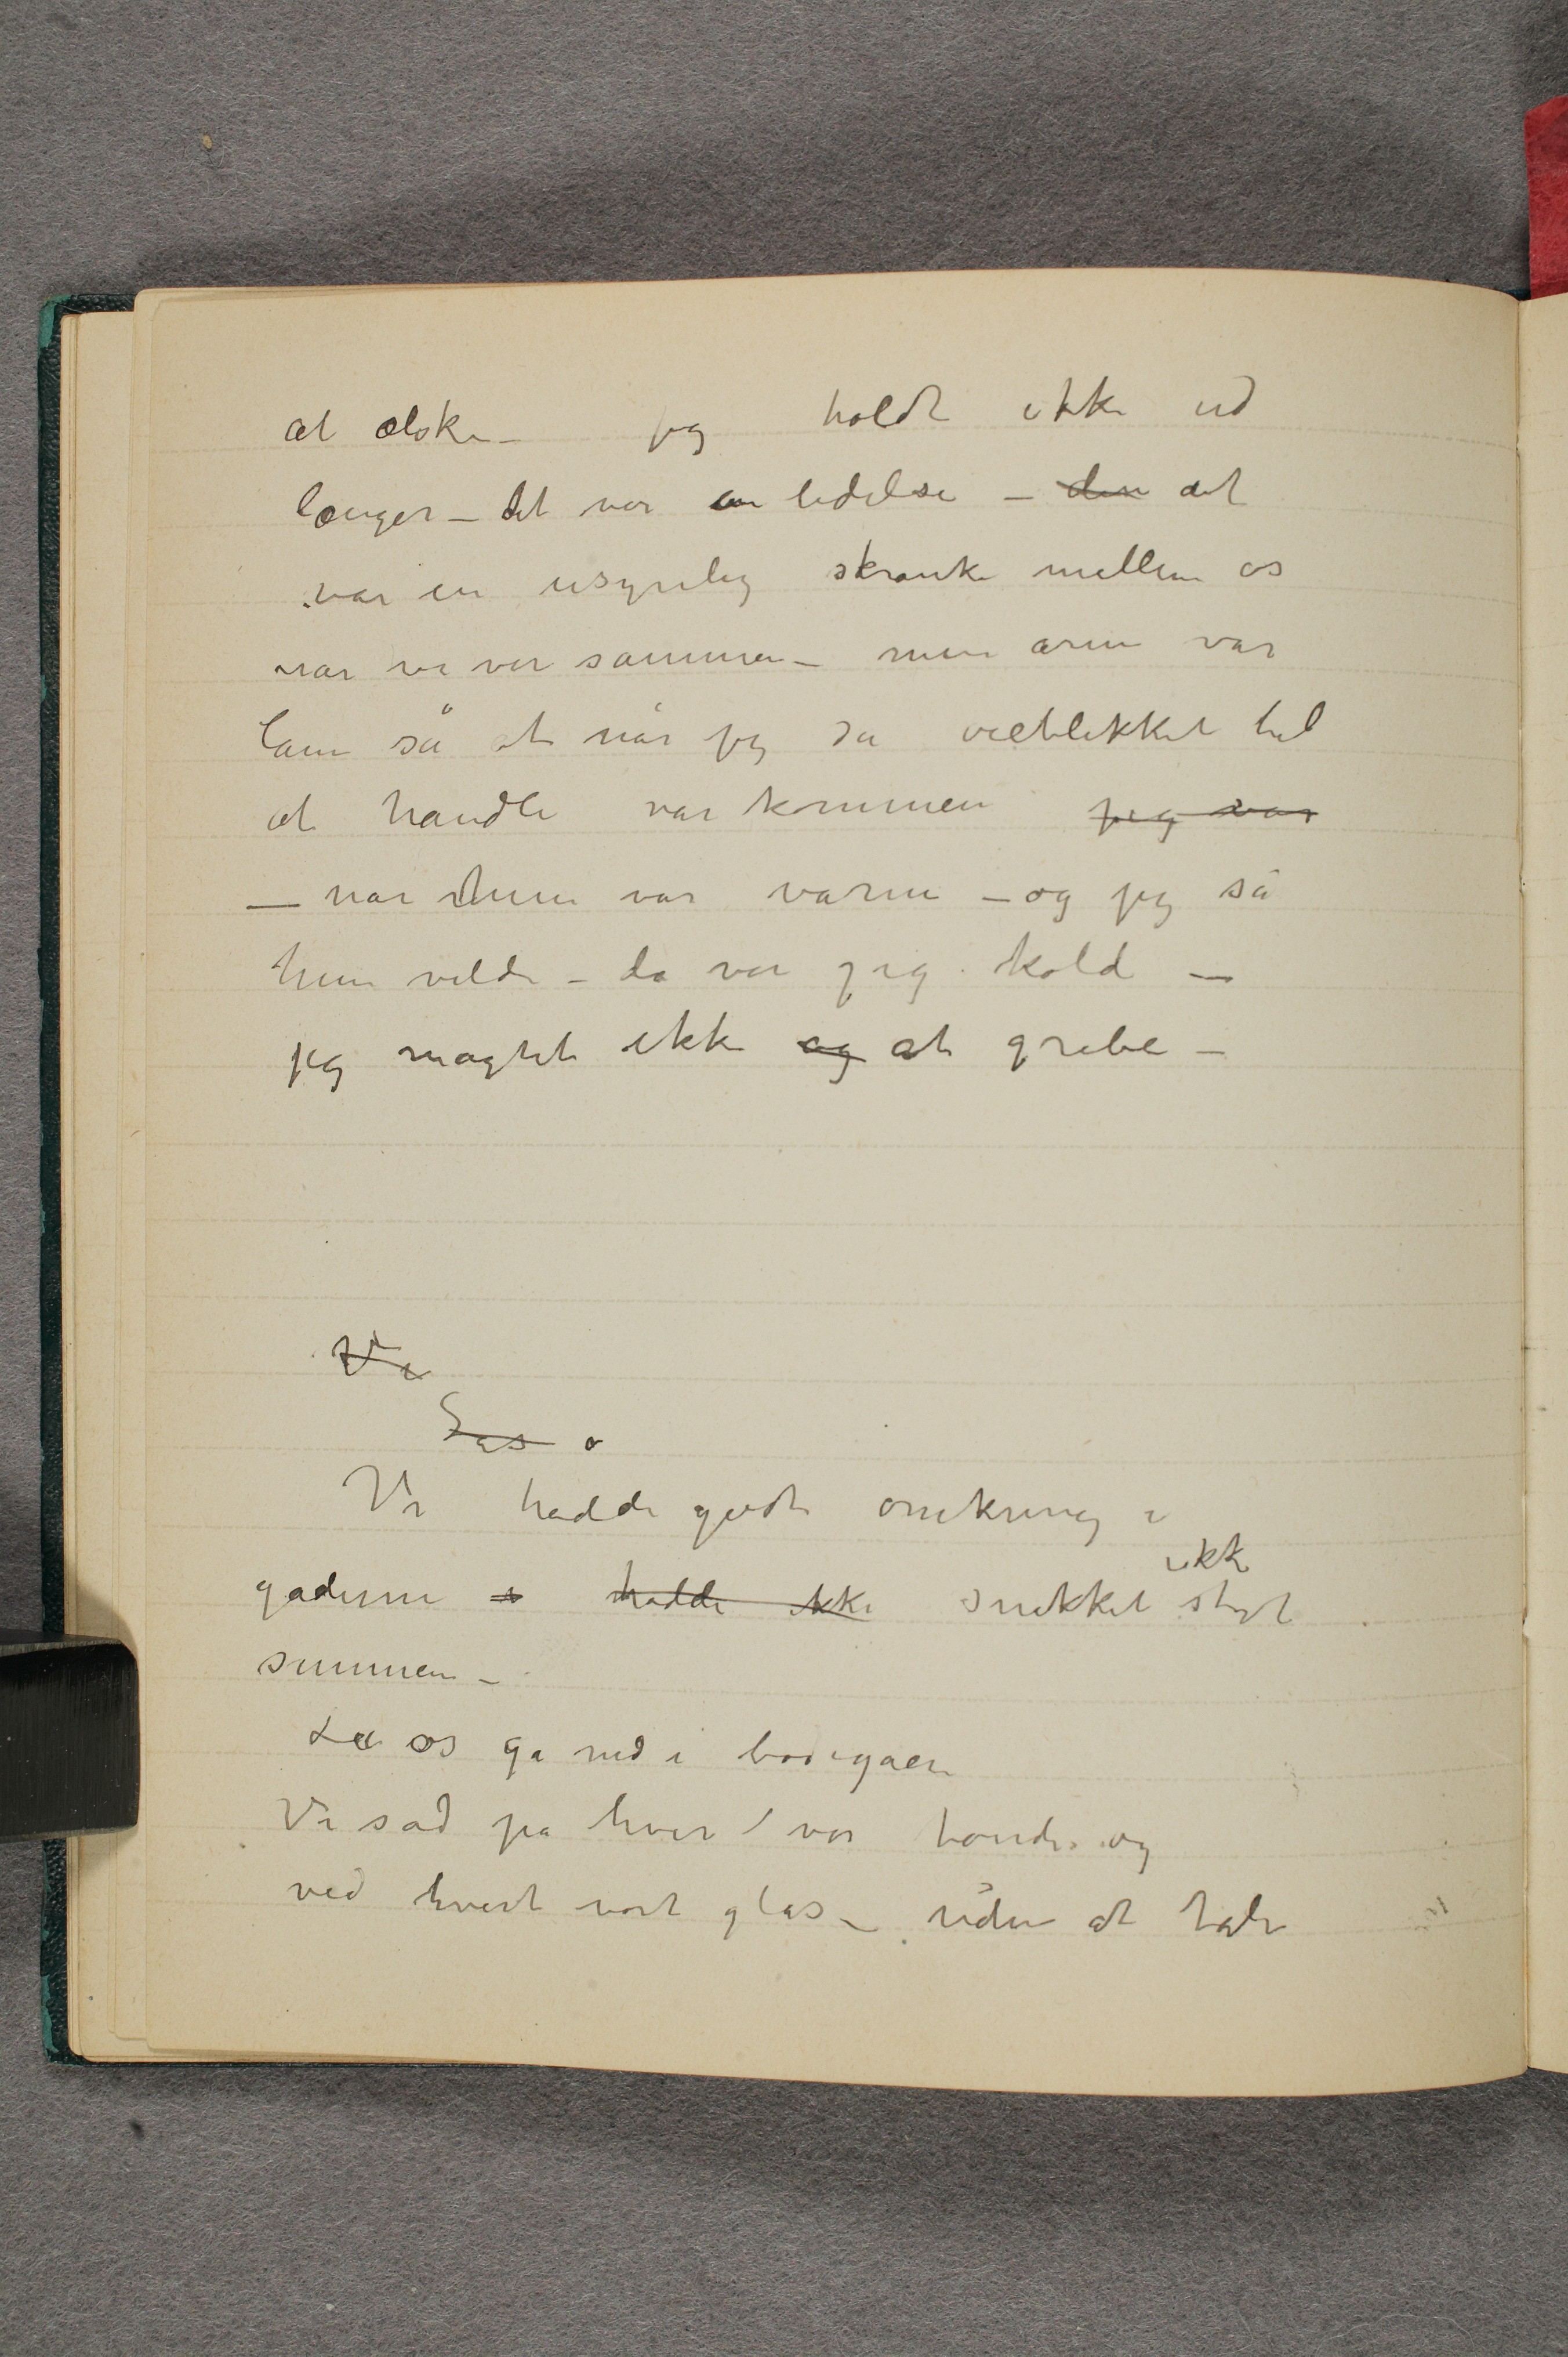 at ælske – jeg holdt ikke ud
længer – det var en lidelse – den det
var en usynlig skranke mellem os
når vi var sammen – min arm var
lam så at når jeg så øieblikket til
at handle var kommen jeg var
– når hun var varm – og jeg så
hun vilde – da var jeg kold –
jeg magtet ikke og at gribe –
Vi
Gas o
Vi hadde gåt omkring i
ikke
gaderne hadde ikke snakket stort
sammen –
La os gå ned i bodegaen
Vi sad på hver vor tønde og
ved hvert vort glas – uden at tale